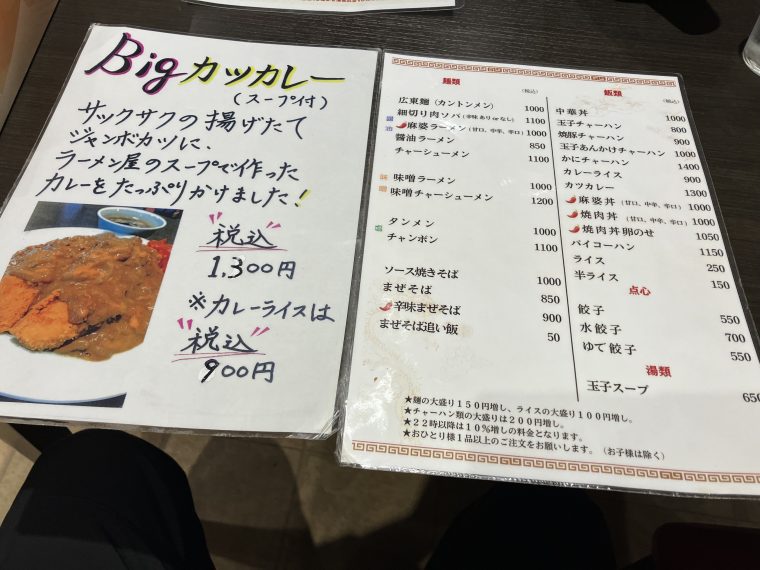 Big カツカレー
(スープ付)
サックサクの揚げたて
ジャンボカツに、
ラーメン屋のスープで作った
カレーをたっぷりかけました!
税込
1,300円
※カレーライスは
税込
900円
麺類
(税込)
広東麺(カントンメン) 1000
細切り肉ソバ(辛味ありorなし) 1100
醤油
麻婆ラーメン(甘口、中辛、辛口) 1000
醤油ラーメン 850
チャーシューメン 1100
味噌
味噌ラーメン 1000
味噌チャーシューメン 1200
塩
タンメン 1000
チャンポン 1100
ソース焼きそば 1000
まぜそば 850
辛味まぜそば 900
まぜそば追い飯 50
飯類
(税込)
中華丼 1000
玉子チャーハン 800
焼豚チャーハン 900
玉子あんかけチャーハン 1000
かにチャーハン 1400
カレーライス 900
カツカレー 1300
麻婆丼(甘口、中辛、辛口) 1000
焼肉丼(甘口、中辛、辛口) 1000
焼肉丼卵のせ 1050
パイコーハン 1150
ライス 250
半ライス 150
点心
餃子 550
水餃子 700
ゆで餃子 550
湯類
玉子スープ 650
★麺の大盛り150円増し、ライスの大盛り100円増し。
★チャーハン類の大盛りは200円増し。
★22時以降は10%増しの料金となります。
★おひとり様1品以上のご注文をお願いします。(お子様は除く)